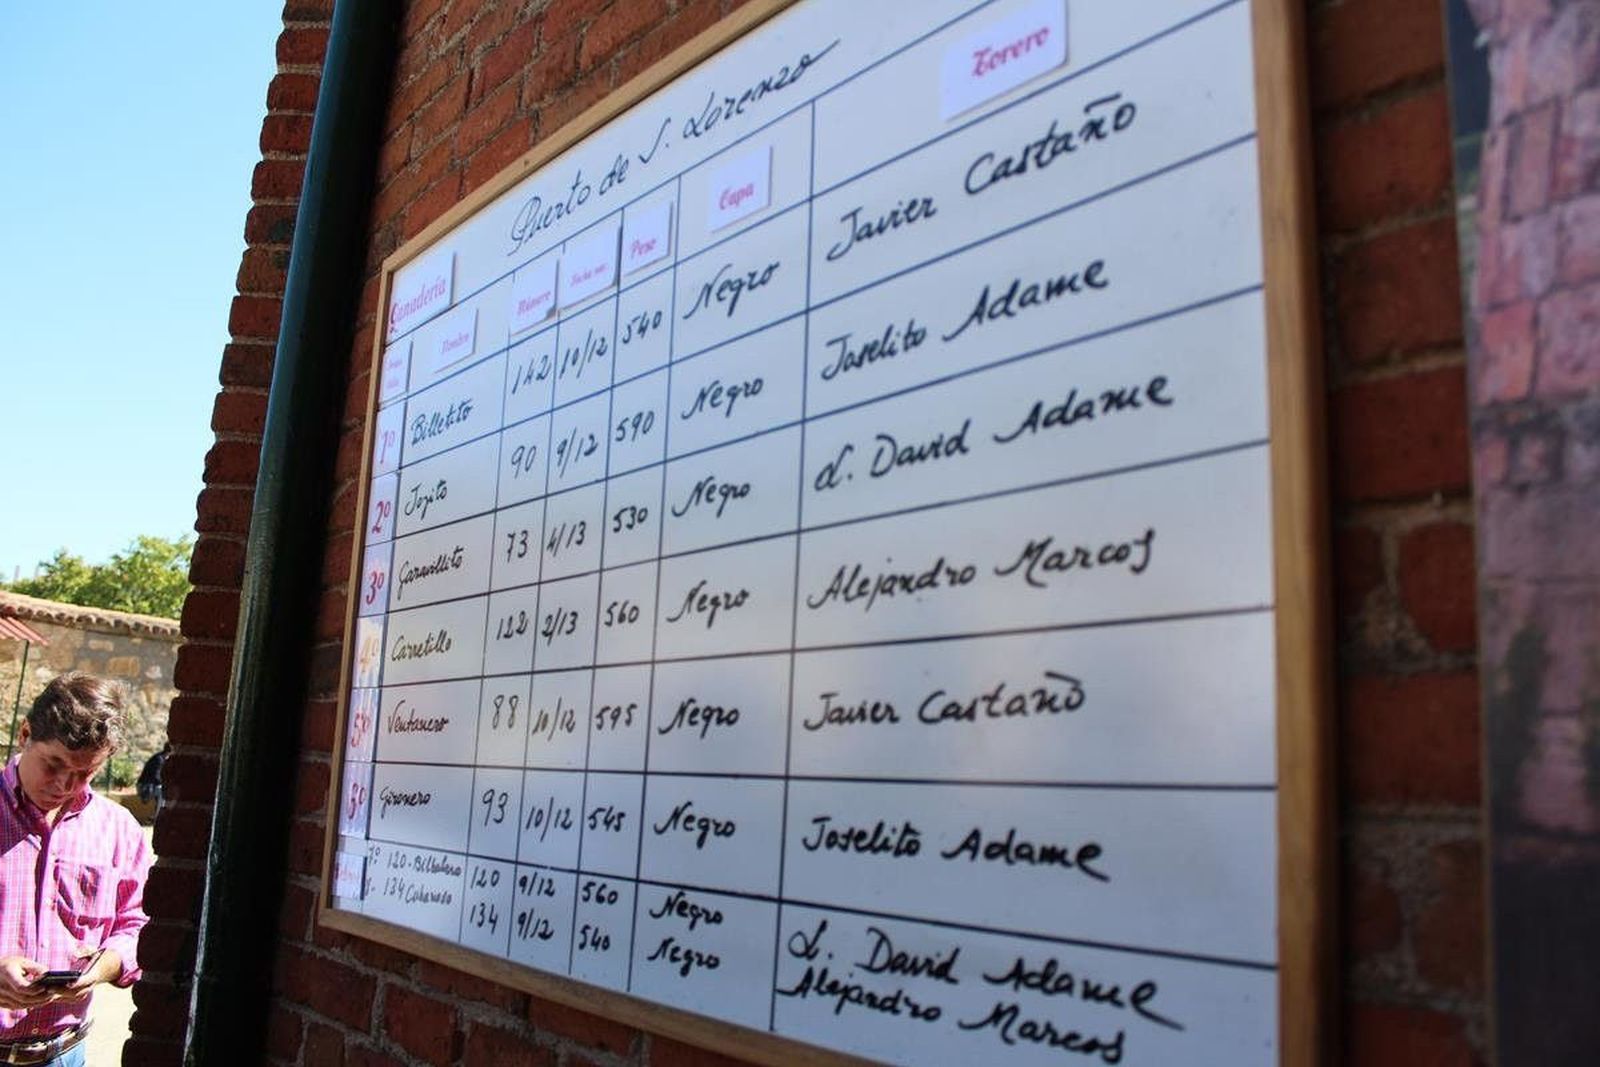 Puerto de S. Lorenzo
Ganadería Torero
Nombre Número Fecha nac. Peso Capa
1º Billetito 142 10/12 540 Negro Javier Castaño
2º Jopito 90 9/12 590 Negro Joselito Adame
3º Garavillito 73 4/13 530 Negro L. David Adame
4º Carretillo 122 2/13 560 Negro Alejandro Marcos
5º Ventanero 88 10/12 595 Negro Javier Castaño
3º Gironero 93 10/12 545 Negro Joselito Adame
7º 120- 120 9/12 560 Negro L. David Adame
8- 134 134 9/12 540 Negro Alejandro Marcos